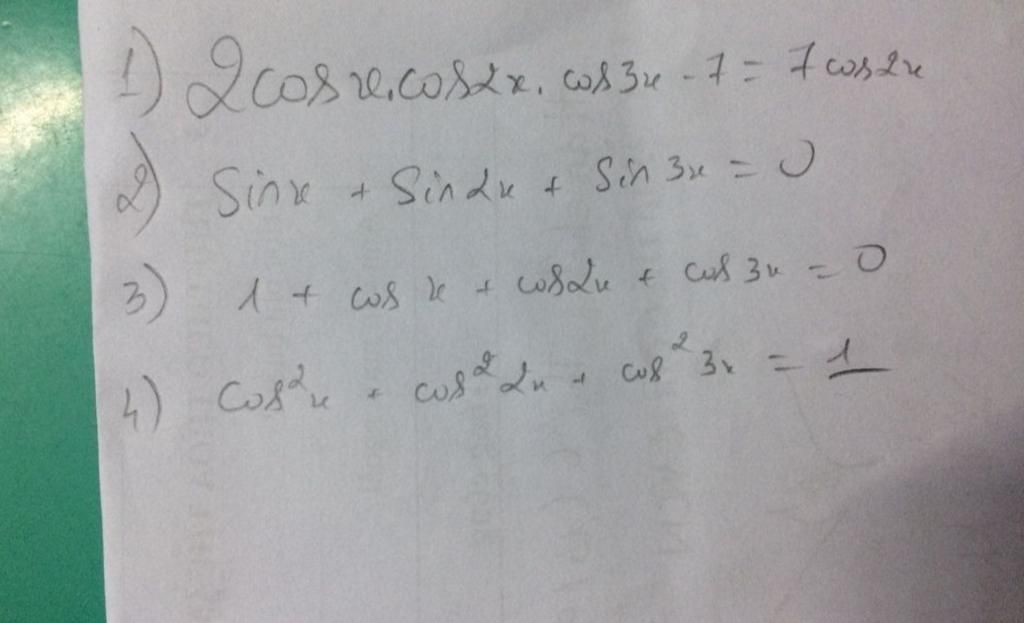 1) 2cosx.cos2x.cos3x - 7 = 7cos2x
2) Sinx + Sin2x + Sin3x = 0
3) 1 + cosx + cos2x + cos3x = 0
4) Cos²x + cos²2x + cos²3x = 1